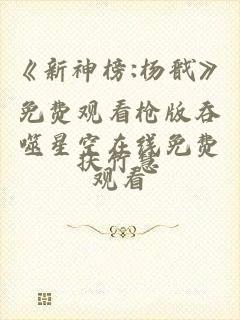 《新神榜:杨戬》
免费观看枪版吞
噬星空在线免费
观看
扶竹慧